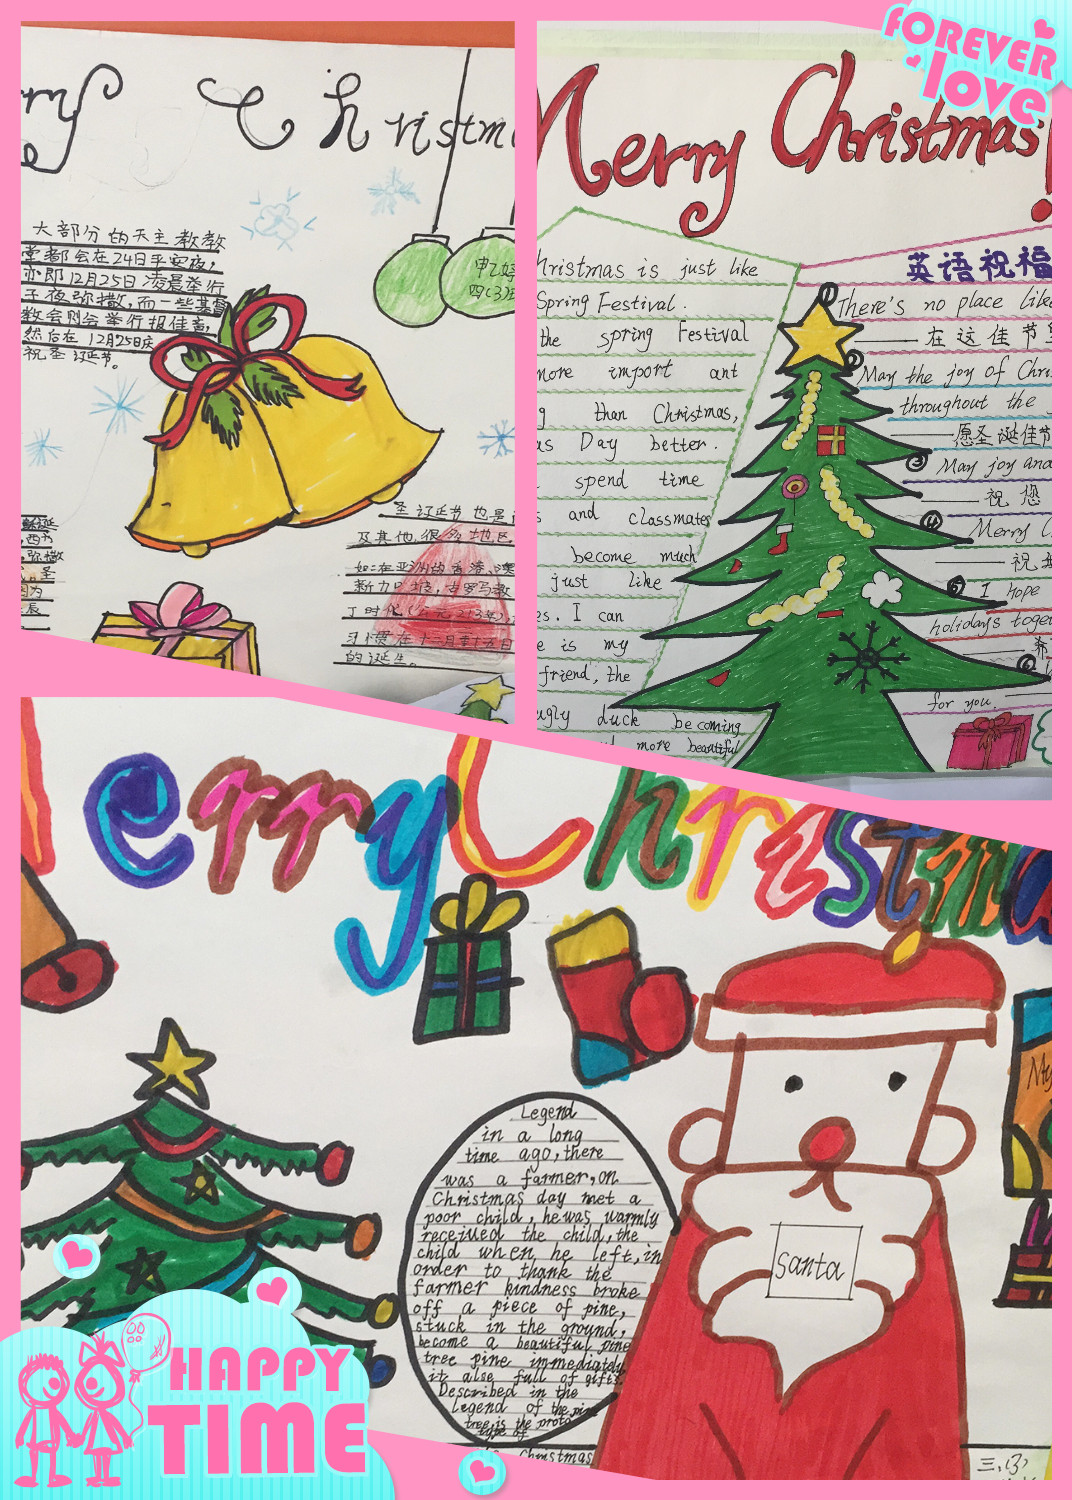 rry Christm
大部分的天主教教
堂都会在24日平安夜，
亦即12月25日凌晨举行
子夜弥撒，而一些基督
教会则会举行报佳音，
然后在12月25日庆
祝圣诞节。
四(3)班
圣诞节也是
及其他很多地区
如：在亚洲的香港、澳
新力口坡，古罗马教
习惯在十二月二十五日
的诞生。
FOREVER
love
Merry Christmas!
英语祝福
hristmas is just like
Spring Festival.
the spring Festival
more import ant
than Christmas,
as Day better.
spend time
and classmates
become much
just like
es. I can
e is my
friend, the
ugly duck becoming
more beautiful
①There's no place like
——在这佳节里
②May the joy of Chri
throughout the
——愿圣诞佳节
③May joy and
——祝您
④Merry C
——祝
⑤I hope
holidays toge
⑥
for you.
erry Christma
My
Legend
in a long
time ago, there
was a farmer, on
Christmas day met a
poor child, he was warmly
received the child, the
child when he left, in
order to thank the
farmer kindness broke
off a piece of pine,
stuck in the ground,
become a beautiful pine
tree pine immediately
it alse full of gifts.
Described in the
legend of the pine
tree is the proto
type of
christmas
Santa
HAPPY
TIME